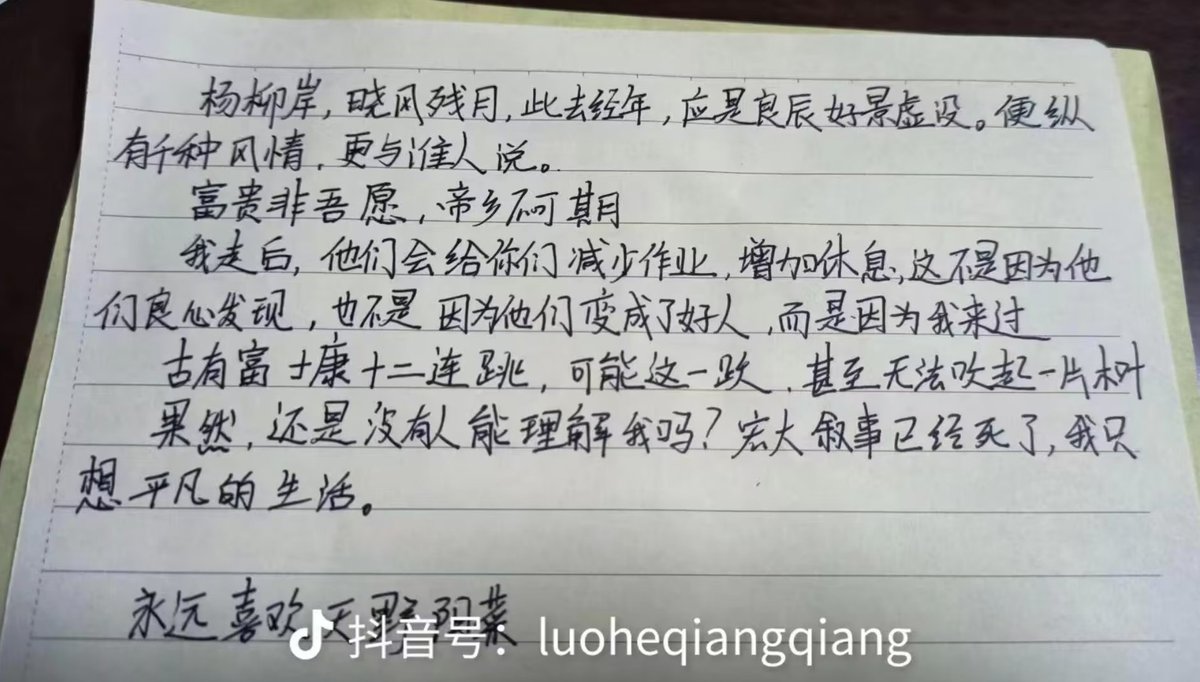 杨柳岸，晓风残月，此去经年，应是良辰好景虚设。便纵
有千种风情，更与谁人说。
富贵非吾愿，帝乡不可期
我走后，他们会给你们减少作业，增加休息，这不是因为他
们良心发现，也不是因为他们变成了好人，而是因为我来过
古有富士康十二连跳，可能这一跃，甚至无法吹起一片树叶
果然，还是没有人能理解我吗？宏大叙事已经死了，我只
想平凡的生活。
永远喜欢天野阿菜
抖音号：luoheqiangqiang